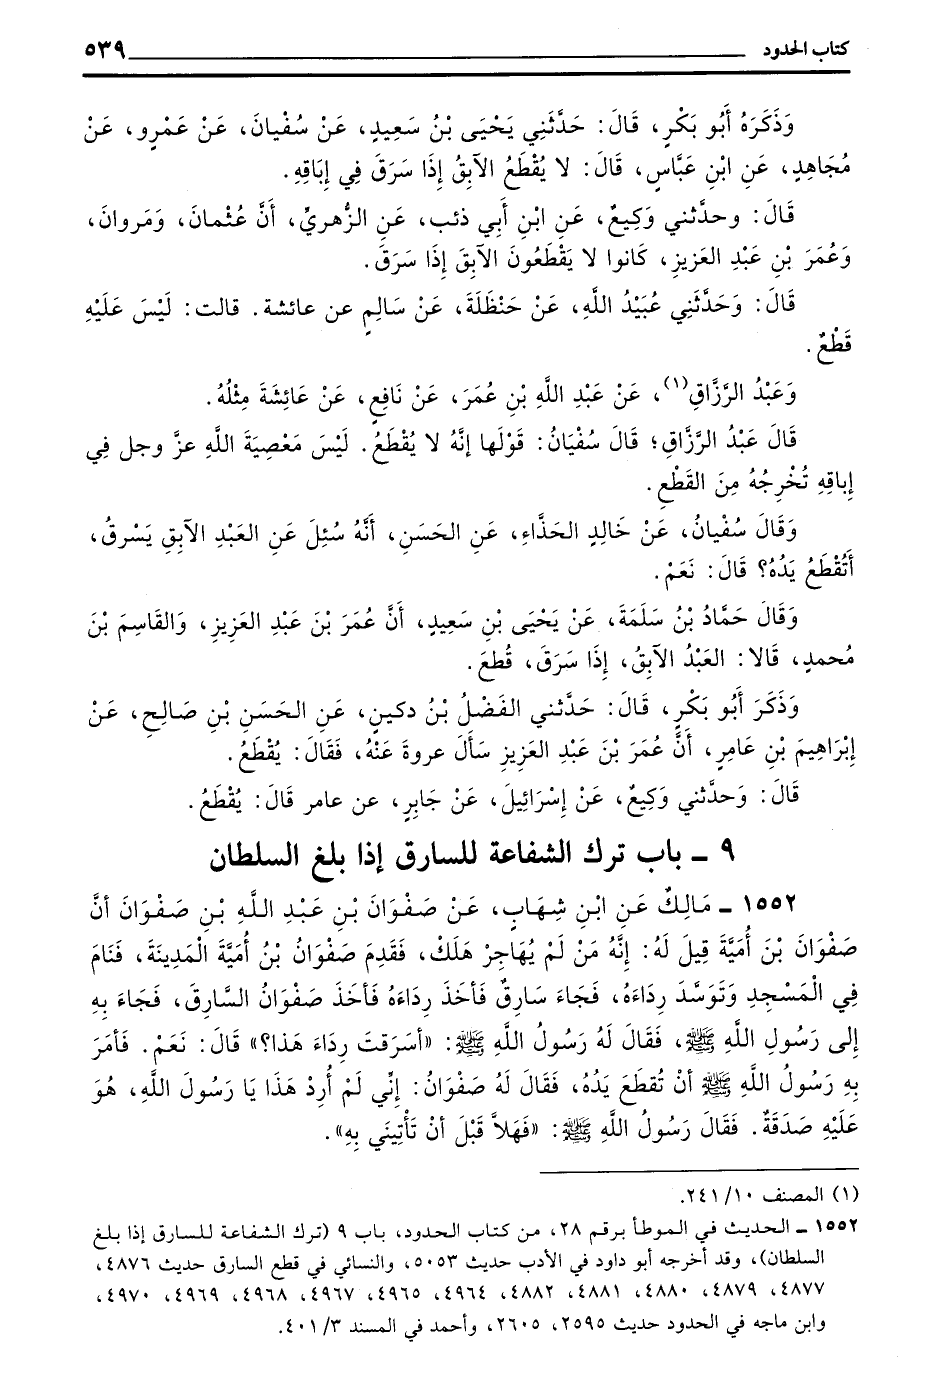 كتاب الحدود ٥٣٩
وَذَكَرَهُ أَبُو بَكْرٍ، قَالَ: حَدَّثَنِي يَحْيَى بْنُ سَعِيدٍ، عَنْ سُفْيانَ، عَنْ عَمْرٍو، عَنْ
مُجَاهِدٍ، عَنِ ابْنِ عَبَّاسٍ، قَالَ: لا يُقْطَعُ الآبِقُ إِذَا سَرَقَ فِي إِبَاقِهِ.
قَالَ: وحدَّثني وَكِيعٌ، عَنِ ابْنِ أَبِي ذئب، عَنِ الزُّهريِّ، أَنَّ عُثْمانَ، وَمَروانَ،
وَعُمَرَ بْنِ عَبْدِ العَزِيزِ، كَانوا لا يَقْطَعُونَ الآبِقَ إِذَا سَرَقَ.
قَالَ: وَحَدَّثَنِي عُبَيْدُ اللَّهِ، عَنْ حَنْظَلَةَ، عَنْ سَالِمٍ عن عائشة. قالت: لَيْسَ عَلَيْهِ
قَطْعٌ.
وَعَبْدُ الرَّزَّاقِ(١)، عَنْ عَبْدِ اللَّهِ بْنِ عُمَرَ، عَنْ نَافِعٍ، عَنْ عَائِشَةَ مِثْلُهُ.
قَالَ عَبْدُ الرَّزَّاقِ؛ قَالَ سُفْيَانُ: قَوْلَها إِنَّهُ لا يُقْطَعُ. لَيْسَ مَعْصِيَةَ اللَّهِ عزَّ وجل فِي
إِباقِهِ تُخْرِجُهُ مِنَ القَطْعِ.
وَقَالَ سُفْيانُ، عَنْ خَالِدٍ الحَذَّاءِ، عَنِ الحَسَنِ، أَنَّهُ سُئِلَ عَنِ العَبْدِ الآبِقِ يَسْرقُ،
أَتُقْطَعُ يَدُهُ؟ قَالَ: نَعَمْ.
وَقَالَ حَمَّادُ بْنُ سَلَمَةَ، عَنْ يَحْيَى بْنِ سَعِيدٍ، أَنَّ عُمَرَ بْنَ عَبْدِ العَزِيزِ، وَالقَاسِمَ بْنَ
مُحمدٍ، قَالا: العَبْدُ الآبِقُ، إِذَا سَرَقَ، قُطعَ.
وَذَكَرَ أَبُو بَكْرٍ، قَالَ: حَدَّثني الفَضْلُ بْنُ دكين، عَنِ الحَسَنِ بْنِ صَالِحٍ، عَنْ
إِبْرَاهِيمَ بْنِ عَامِرٍ، أَنَّ عُمَرَ بْنَ عَبْدِ العَزِيزِ سَأَلَ عروةَ عَنْهُ، فَقَالَ: يُقْطَعُ.
قَالَ: وَحدَّثني وَكِيعٌ، عَنْ إِسْرَائِيلَ، عَنْ جَابِرٍ، عن عامر قَالَ: يُقْطَعُ.
٩ ـ باب ترك الشفاعة للسارق إذا بلغ السلطان
١٥٥٢ ـ مَالِكٌ عَنِ ابْنِ شِهَابٍ، عَنْ صَفْوَانَ بْنِ عَبْدِ اللَّهِ بْنِ صَفْوَانَ أنَّ
صَفْوَانَ بْنَ أُمَيَّةَ قِيلَ لَهُ: إِنَّهُ مَنْ لَمْ يُهَاجِرْ هَلَكَ، فَقَدِمَ صَفْوَانُ بْنُ أُمَيَّةَ الْمَدِينَةَ، فَنَامَ
فِي الْمَسْجِدِ وَتَوَسَّدَ رِدَاءَهُ، فَجَاءَ سَارِقٌ فَأَخَذَ رِدَاءَهُ فَأَخَذَ صَفْوَانُ السَّارِقَ، فَجَاءَ بِهِ
إلى رَسُولِ اللَّهِ ﷺ، فَقَالَ لَهُ رَسُولُ اللَّهِ ﷺ: «أسَرَقتَ رِدَاءَ هَذا؟» قَالَ: نَعَمْ. فَأمَرَ
بِهِ رَسُولُ اللَّهِ ﷺ أنْ تُقطَعَ يَدُهُ، فَقَالَ لَهُ صَفْوَانُ: إنِّي لَمْ أُرِدْ هَذَا يَا رَسُولَ اللَّهِ، هُوَ
عَلَيْهِ صَدَقَةٌ. فَقَالَ رَسُولُ اللَّهِ ﷺ: «فَهَلاَّ قَبْلَ أنْ تَأْتِيَنَي بِهِ».
(١) المصنف ١٠/ ٢٤١.
١٥٥٢ ـ الحديث في الموطأ برقم ٢٨، من كتاب الحدود، باب ٩ (ترك الشفاعة للسارق إذا بلغ
السلطان)، وقد أخرجه أبو داود في الأدب حديث ٥٠٥٣، والنسائي في قطع السارق حديث ٤٨٧٦،
٤٨٧٧، ٤٨٧٩، ٤٨٨٠، ٤٨٨١، ٤٨٨٢، ٤٩٦٤، ٤٩٦٥، ٤٩٦٧، ٤٩٦٨، ٤٩٦٩، ٤٩٧٠،
وابن ماجه في الحدود حديث ٢٥٩٥، ٢٦٠٥، وأحمد في المسند ٣/ ٤٠١.